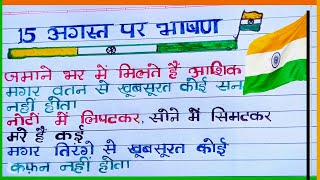 15 अगस्त पर भाषण
जमाने भर में मिलते हैं आशिक
मगर वतन से खूबसूरत कोई सन
नहीं होता
नोटों में लिपटकर, सोने में सिमटकर
मरे है कई
मगर तिरंगे से खूबसूरत कोई
कफ़न नहीं होता